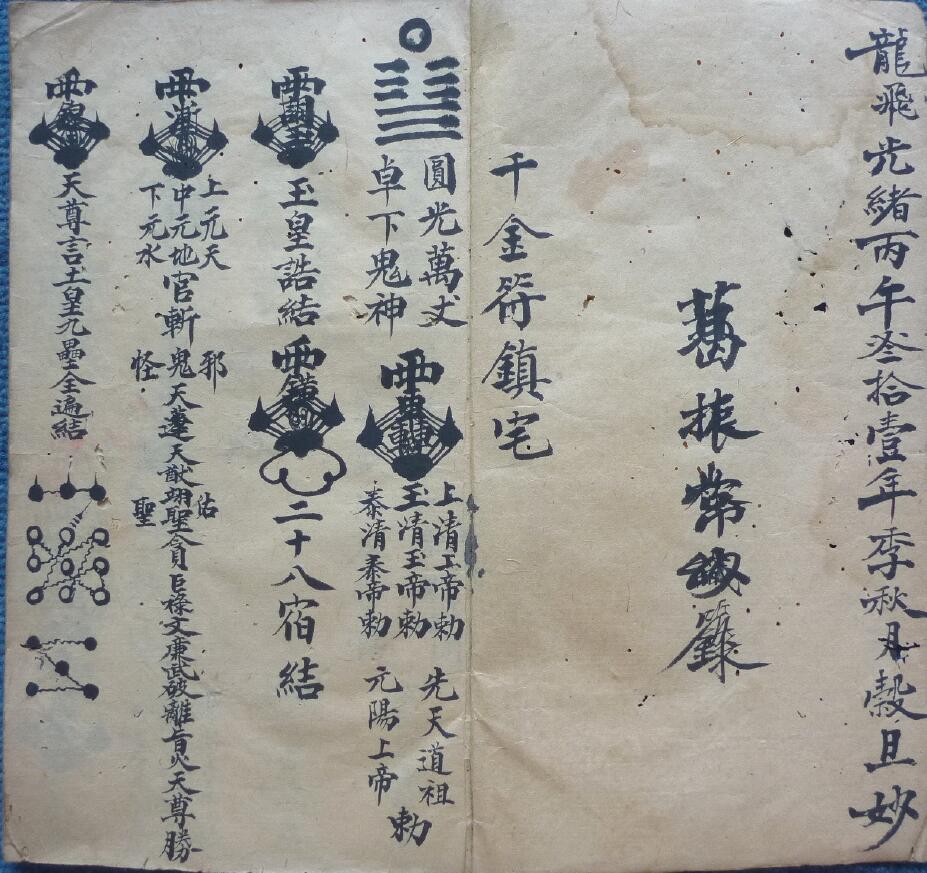 龍飛光緒丙午叁拾壹年季秋月穀旦妙
葛振常
籙
千金符鎮宅
圓光萬丈
卓下鬼神
上清上帝勅
玉清玉帝勅
泰清泰帝勅
先天道祖
元陽上帝
勅
玉皇誥結
二十八宿結
上元天
中元地官斬鬼天蓬天猷翊聖貪巨祿文廉武破離盲火天尊勝
下元水
邪
怪
佑
聖
天尊言土皇九壘全遍結